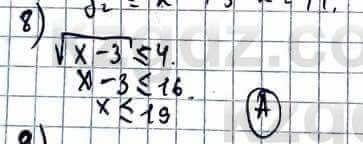 8)
√x-3 ≤ 4.
x-3 ≤ 16.
x ≤ 19
A
9)